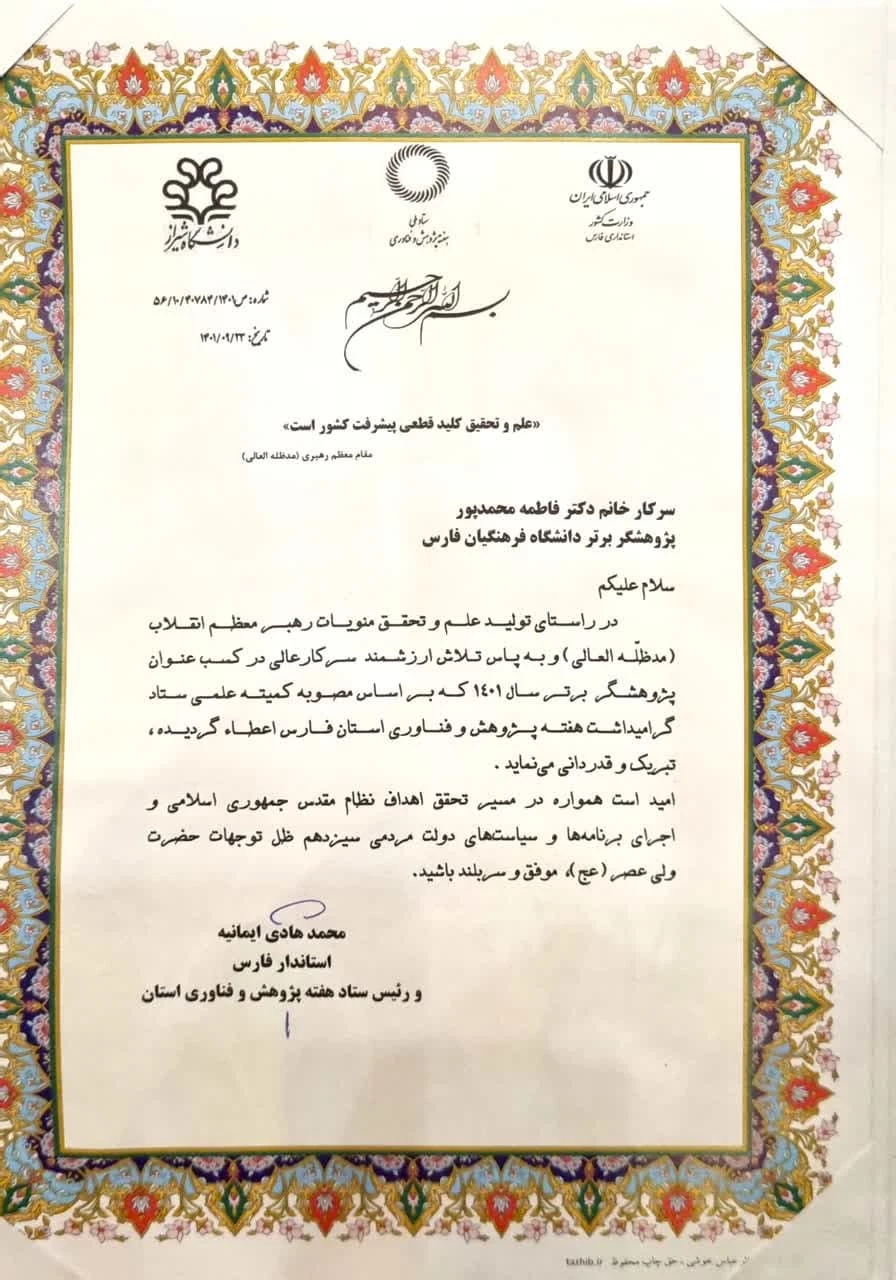 جمهوری اسلامی ایران
وزارت کشور
استانداری فارس
ستاد ملی
هفته پژوهش و فناوری
دانشگاه شیراز
بسم الله الرحمن الرحیم
شماره: ص/۵۶/۱۰/۴۰۷۸۴/۱۴۰۱
تاریخ: ۱۴۰۱/۰۹/۲۳
«علم و تحقیق کلید قطعی پیشرفت کشور است»
مقام معظم رهبری (مدظله العالی)
سرکار خانم دکتر فاطمه محمدپور
پژوهشگر برتر دانشگاه فرهنگیان فارس
سلام علیکم
در راستای تولید علم و تحقق منویات رهبر معظم انقلاب
(مدظلّه العالی) و به پاس تلاش ارزشمند سرکارعالی در کسب عنوان
پژوهشگر برتر سال ۱۴۰۱ که بر اساس مصوبه کمیته علمی ستاد
گرامیداشت هفته پژوهش و فناوری استان فارس اعطاء گردیده،
تبریک و قدردانی می‌نماید .
امید است همواره در مسیر تحقق اهداف نظام مقدس جمهوری اسلامی و
اجرای برنامه‌ها و سیاست‌های دولت مردمی سیزدهم ظل توجهات حضرت
ولی عصر (عج)، موفق و سربلند باشید.
محمد هادی ایمانیه
استاندار فارس
و رئیس ستاد هفته پژوهش و فناوری استان
عباس خوشی ، حق چاپ محفوظ tazhib.ir